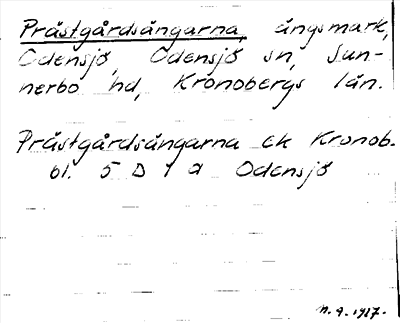 Prästgårdsängarna, ängsmark,
Odensjö, Odensjö sn, Sun-
nerbo hd, Kronobergs län.
Prästgårdsängarna ek Kronob.
bl. 5 D 1 a Odensjö
n. 9. 1917.